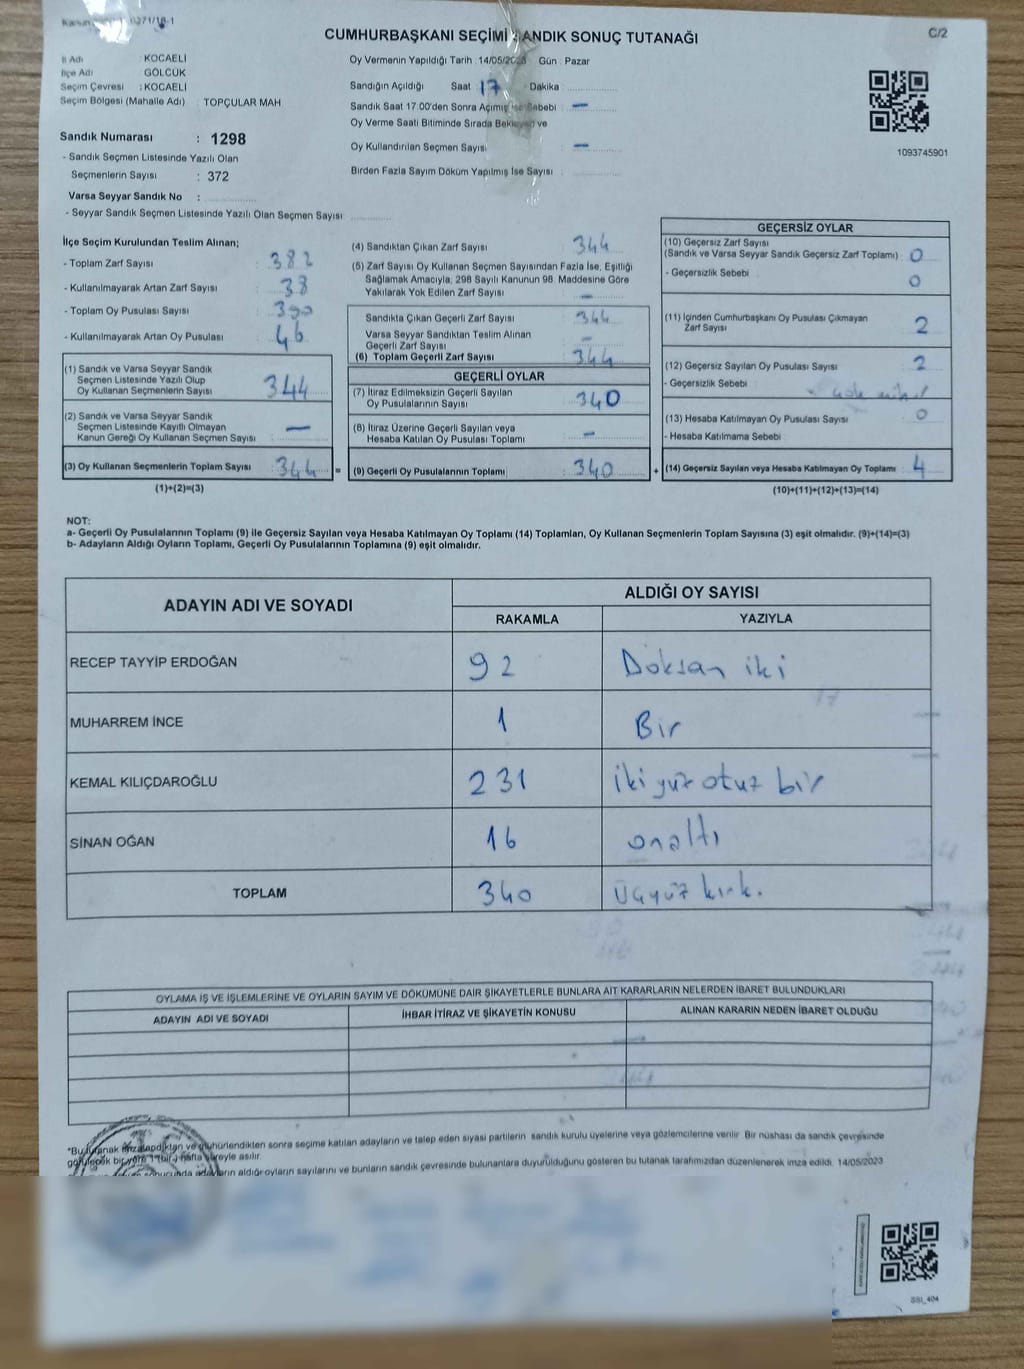 CUMHURBAŞKANI SEÇİMİ SANDIK SONUÇ TUTANAĞI
C/2
İl Adı : KOCAELİ
İlçe Adı : GÖLCÜK
Seçim Çevresi : KOCAELİ
Seçim Bölgesi (Mahalle Adı) : TOPÇULAR MAH
Sandık Numarası : 1298
- Sandık Seçmen Listesinde Yazılı Olan
Seçmenlerin Sayısı : 372
Varsa Seyyar Sandık No :
- Seyyar Sandık Seçmen Listesinde Yazılı Olan Seçmen Sayısı
Oy Vermenin Yapıldığı Tarih : 14/05/2023 Gün : Pazar
Sandığın Açıldığı Saat 17 Dakika
Sandık Saat 17:00'den Sonra Açılmış İse Sebebi —
Oy Verme Saati Bitiminde Sırada Bekleyen ve
Oy Kullandırılan Seçmen Sayısı —
Birden Fazla Sayım Döküm Yapılmış İse Sayısı :
1093745901
İlçe Seçim Kurulundan Teslim Alınan;
- Toplam Zarf Sayısı : 382
- Kullanılmayarak Artan Zarf Sayısı : 38
- Toplam Oy Pusulası Sayısı : 390
- Kullanılmayarak Artan Oy Pusulası : 46
(1) Sandık ve Varsa Seyyar Sandık
Seçmen Listesinde Yazılı Olup
Oy Kullanan Seçmenlerin Sayısı 344
(2) Sandık ve Varsa Seyyar Sandık
Seçmen Listesinde Kayıtlı Olmayan
Kanun Gereği Oy Kullanan Seçmen Sayısı —
(3) Oy Kullanan Seçmenlerin Toplam Sayısı 344 =
(1)+(2)=(3)
(4) Sandıktan Çıkan Zarf Sayısı 344
(5) Zarf Sayısı Oy Kullanan Seçmen Sayısından Fazla İse, Eşitliği
Sağlamak Amacıyla, 298 Sayılı Kanunun 98. Maddesine Göre
Yakılarak Yok Edilen Zarf Sayısı —
Sandıkta Çıkan Geçerli Zarf Sayısı 344
Varsa Seyyar Sandıktan Teslim Alınan
Geçerli Zarf Sayısı —
(6) Toplam Geçerli Zarf Sayısı 344
GEÇERLİ OYLAR
(7) İtiraz Edilmeksizin Geçerli Sayılan
Oy Pusulalarının Sayısı 340
(8) İtiraz Üzerine Geçerli Sayılan veya
Hesaba Katılan Oy Pusulası Toplamı —
(9) Geçerli Oy Pusulalarının Toplamı 340 +
GEÇERSİZ OYLAR
(10) Geçersiz Zarf Sayısı
(Sandık ve Varsa Seyyar Sandık Geçersiz Zarf Toplamı) 0
- Geçersizlik Sebebi 0
(11) İçinden Cumhurbaşkanı Oy Pusulası Çıkmayan
Zarf Sayısı 2
(12) Geçersiz Sayılan Oy Pusulası Sayısı 2
- Geçersizlik Sebebi
(13) Hesaba Katılmayan Oy Pusulası Sayısı 0
- Hesaba Katılmama Sebebi
(14) Geçersiz Sayılan veya Hesaba Katılmayan Oy Toplamı 4
(10)+(11)+(12)+(13)=(14)
NOT:
a- Geçerli Oy Pusulalarının Toplamı (9) ile Geçersiz Sayılan veya Hesaba Katılmayan Oy Toplamı (14) Toplamları, Oy Kullanan Seçmenlerin Toplam Sayısına (3) eşit olmalıdır. (9)+(14)=(3)
b- Adayların Aldığı Oyların Toplamı, Geçerli Oy Pusulalarının Toplamına (9) eşit olmalıdır.
ADAYIN ADI VE SOYADI
ALDIĞI OY SAYISI
RAKAMLA YAZIYLA
RECEP TAYYİP ERDOĞAN 92 Doksan iki
MUHARREM İNCE 1 Bir
KEMAL KILIÇDAROĞLU 231 İki yüz otuz bir
SİNAN OĞAN 16 onaltı
TOPLAM 340 Üçyüz kırk.
OYLAMA İŞ VE İŞLEMLERİNE VE OYLARIN SAYIM VE DÖKÜMÜNE DAİR ŞİKAYETLERLE BUNLARA AİT KARARLARIN NELERDEN İBARET BULUNDUKLARI
ADAYIN ADI VE SOYADI İHBAR İTİRAZ VE ŞİKAYETİN KONUSU ALINAN KARARIN NEDEN İBARET OLDUĞU
*Bu tutanak imzalandıktan ve mühürlendikten sonra seçime katılan adayların ve talep eden siyasi partilerin sandık kurulu üyelerine veya gözlemcilerine verilir. Bir nüshası da sandık çevresinde
görülecek bir yere 1 (bir) hafta süreyle asılır.
adayların aldığı oyların sayılarını ve bunların sandık çevresinde bulunanlara duyurulduğunu gösteren bu tutanak tarafımızdan düzenlenerek imza edildi. 14/05/2023
SSI_404